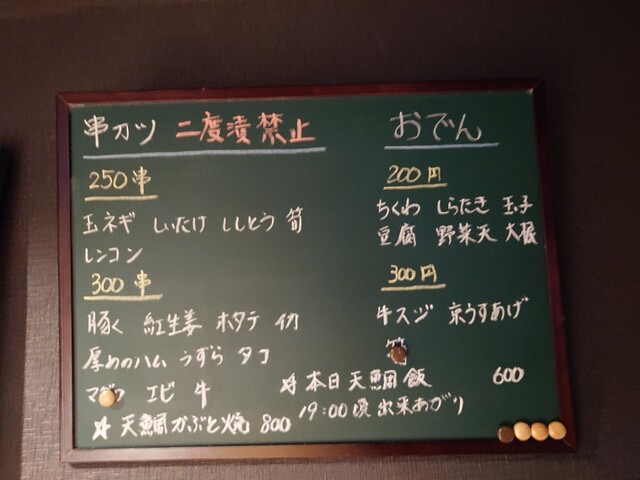 串カツ 二度漬禁止
250串
玉ネギ しいたけ ししとう 筍
レンコン
300串
豚く 紅生姜 ホタテ イカ
厚めのハム うずら タコ
エビ 牛
☆ 天鯛かぶと焼 800
おでん
200円
ちくわ しらたき 玉子
豆腐 野菜天 大根
300円
牛スジ 京うすあげ
☆ 本日天鯛飯 600
19:00頃出来あがり